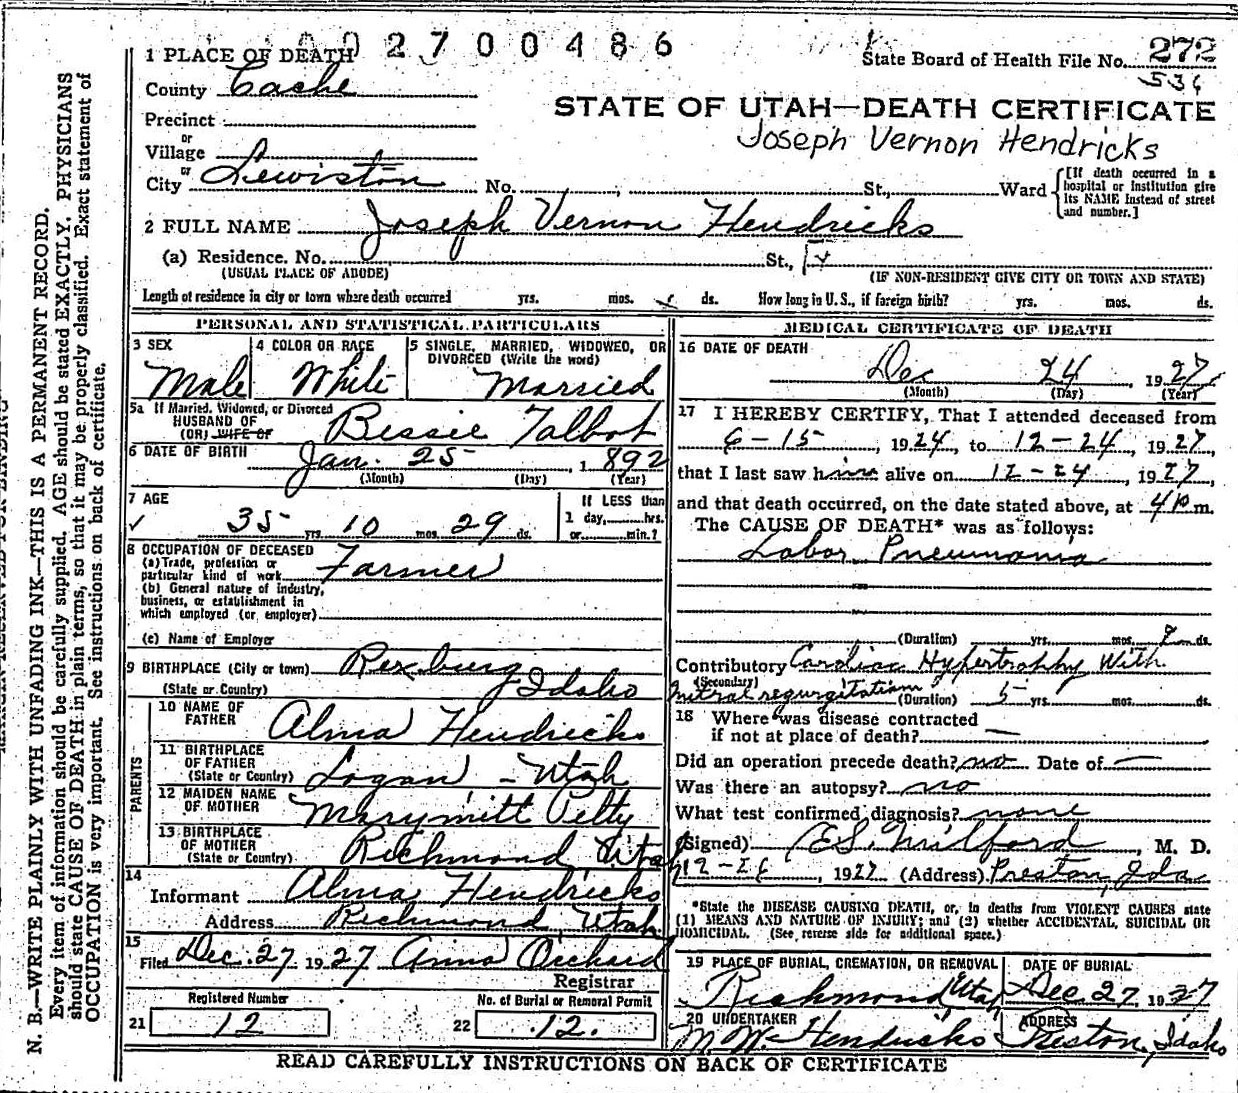 002700486
1 PLACE OF DEATH
State Board of Health File No. 272
536
County Cache
STATE OF UTAH—DEATH CERTIFICATE
Precinct
Joseph Vernon Hendricks
or
Village
or
City Lewiston No. St., Ward
[If death occurred in a hospital or institution give its NAME instead of street and number.]
2 FULL NAME Joseph Vernon Hendricks
(a) Residence. No. St.,
(USUAL PLACE OF ABODE) (IF NON-RESIDENT GIVE CITY OR TOWN AND STATE)
Length of residence in city or town where death occurred yrs. mos. ds. How long in U. S., if foreign birth? yrs. mos. ds.
PERSONAL AND STATISTICAL PARTICULARS
3 SEX
Male
4 COLOR OR RACE
White
5 SINGLE, MARRIED, WIDOWED, OR
DIVORCED (Write the word)
Married
5a If Married, Widowed, or Divorced
HUSBAND OF
(OR) WIFE OF
Bessie Talbot
6 DATE OF BIRTH Jan. 25, 1892
(Month) (Day) (Year)
7 AGE
35 yrs. 10 mos. 29 ds.
If LESS than
1 day, hrs.
or min.?
8 OCCUPATION OF DECEASED
(a) Trade, profession or
particular kind of work Farmer
(b) General nature of industry,
business, or establishment in
which employed (or employer)
(c) Name of Employer
9 BIRTHPLACE (City or town) Rexburg
(State or Country) Idaho
PARENTS
10 NAME OF
FATHER Alma Hendricks
11 BIRTHPLACE
OF FATHER
(State or Country) Logan - Utah
12 MAIDEN NAME
OF MOTHER Petty
13 BIRTHPLACE
OF MOTHER
(State or Country) Richmond, Utah
14
Informant Alma Hendricks
Address Richmond, Utah
15
Filed Dec. 27, 1927 Anna Orchard
Registrar
Registered Number
21 12
No. of Burial or Removal Permit
22 12.
MEDICAL CERTIFICATE OF DEATH
16 DATE OF DEATH
Dec 24, 1927
(Month) (Day) (Year)
17 I HEREBY CERTIFY, That I attended deceased from
6-15, 1924, to 12-24, 1927,
that I last saw him alive on 12-24, 1927,
and that death occurred, on the date stated above, at 4 P m.
The CAUSE OF DEATH* was as follows:
Lobar Pneumonia
(Duration) yrs. mos. 7 ds.
Contributory Cardiac Hypertrophy With
(Secondary)
Mitral regurgitation (Duration) 5 yrs. mos. ds.
18 Where was disease contracted
if not at place of death? —
Did an operation precede death? no Date of —
Was there an autopsy? no
What test confirmed diagnosis? none
(Signed) E.S. Milford, M. D.
12-26, 1927 (Address) Preston, Ida
*State the DISEASE CAUSING DEATH, or, in deaths from VIOLENT CAUSES state
(1) MEANS AND NATURE OF INJURY; and (2) whether ACCIDENTAL, SUICIDAL OR
HOMICIDAL. (See reverse side for additional space.)
19 PLACE OF BURIAL, CREMATION, OR REMOVAL
Richmond, Utah
DATE OF BURIAL
Dec 27, 1927
20 UNDERTAKER
M. W. Hendricks
ADDRESS
Preston, Idaho
READ CAREFULLY INSTRUCTIONS ON BACK OF CERTIFICATE
N. B.—WRITE PLAINLY WITH UNFADING INK—THIS IS A PERMANENT RECORD.
Every item of information should be carefully supplied. AGE should be stated EXACTLY. PHYSICIANS
should state CAUSE OF DEATH in plain terms, so that it may be properly classified. Exact statement of
OCCUPATION is very important. See instructions on back of certificate.